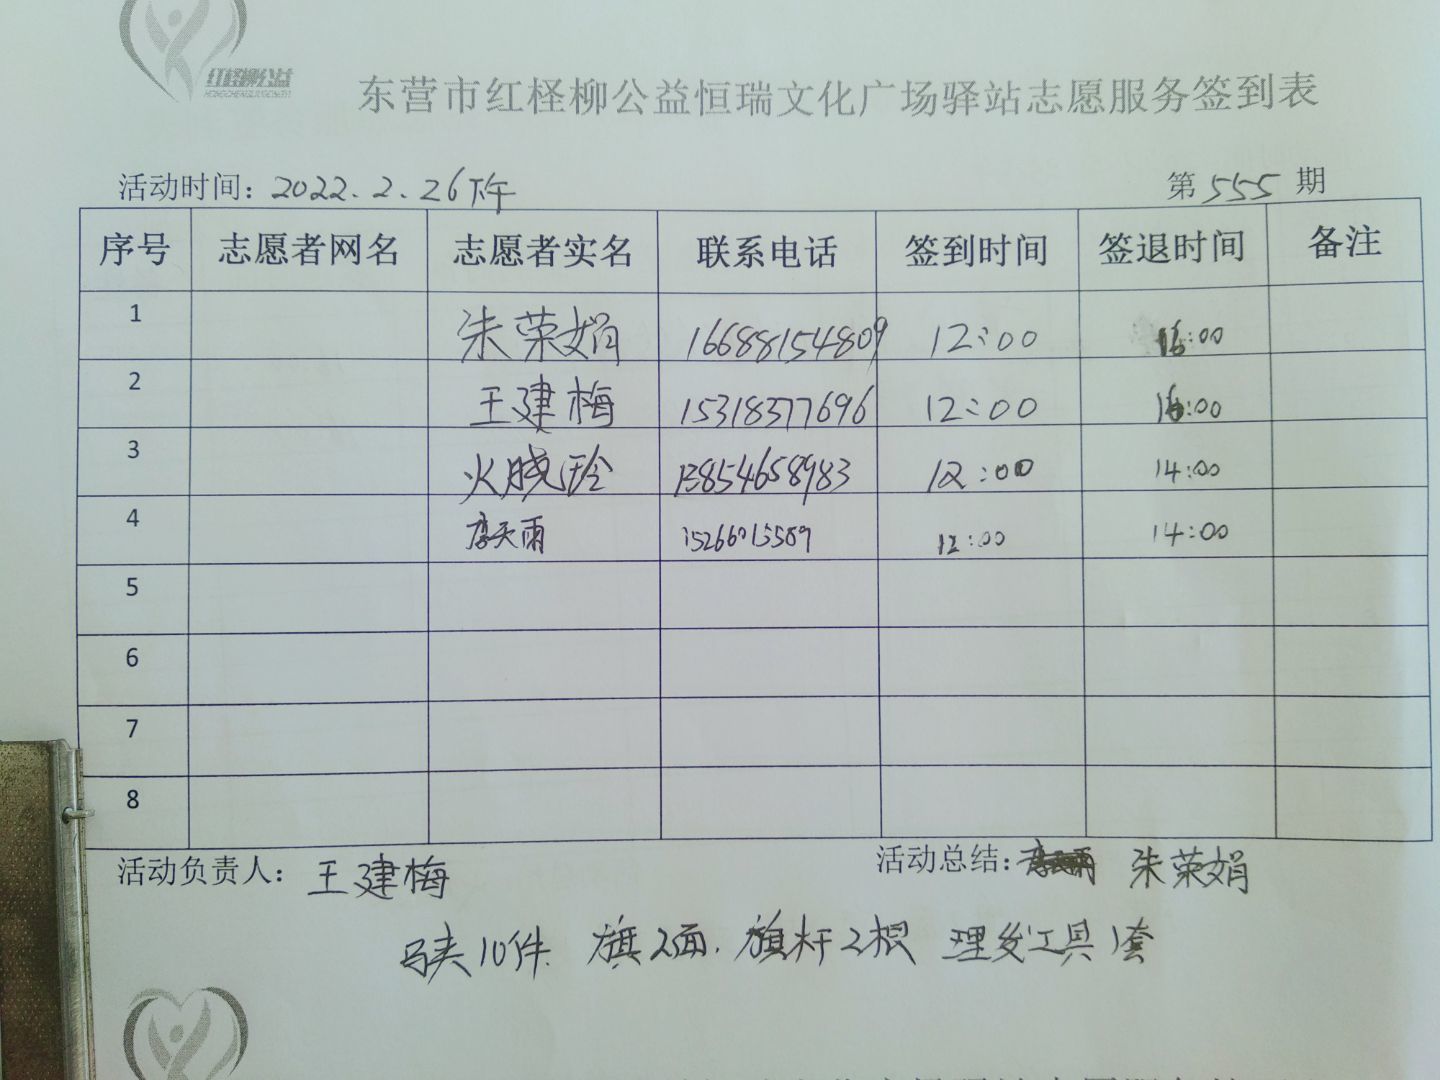 红柽柳公益
东营市红柽柳公益恒瑞文化广场驿站志愿服务签到表
活动时间：2022.2.26下午 第555期
序号 志愿者网名 志愿者实名 联系电话 签到时间 签退时间 备注
1 朱荣娟 16688154809 12:00 16:00
2 王建梅 15318377696 12:00 16:00
3 火晓玲 13854658983 12:00 14:00
4 李天雨 15266015589 12:00 14:00
5
6
7
8
活动负责人：王建梅 活动总结：朱荣娟
马夹10件 旗2面. 旗杆2根 理发工具1套